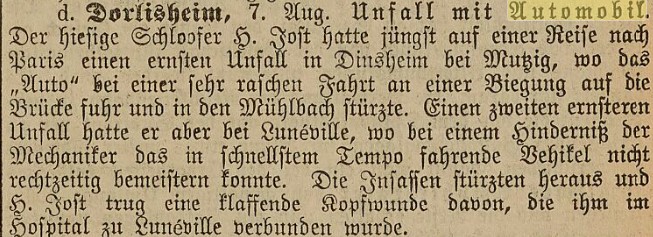 d. Dorlisheim, 7. Aug. Unfall mit Automobil.
Der hiesige Schloofer H. Jost hatte jüngst auf einer Reise nach
Paris einen ernsten Unfall in Dinsheim bei Mutzig, wo das
„Auto" bei einer sehr raschen Fahrt an einer Biegung auf die
Brücke fuhr und in den Mühlbach stürzte. Einen zweiten ernsteren
Unfall hatte er aber bei Lunéville, wo bei einem Hinderniß der
Mechaniker das in schnellstem Tempo fahrende Vehikel nicht
rechtzeitig bemeistern konnte. Die Insassen stürzten heraus und
H. Jost trug eine klaffende Kopfwunde davon, die ihm im
Hospital zu Lunéville verbunden wurde.